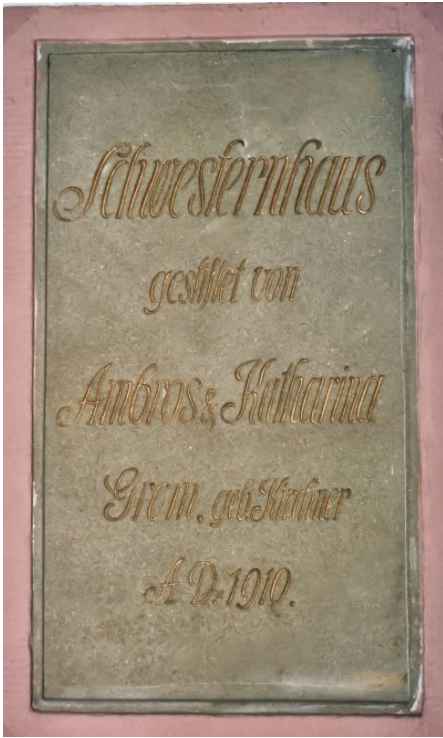 Schwesternhaus
gestiftet von
Ambros & Katharina
Grom, geb. Kirchner
A.D. 1910.